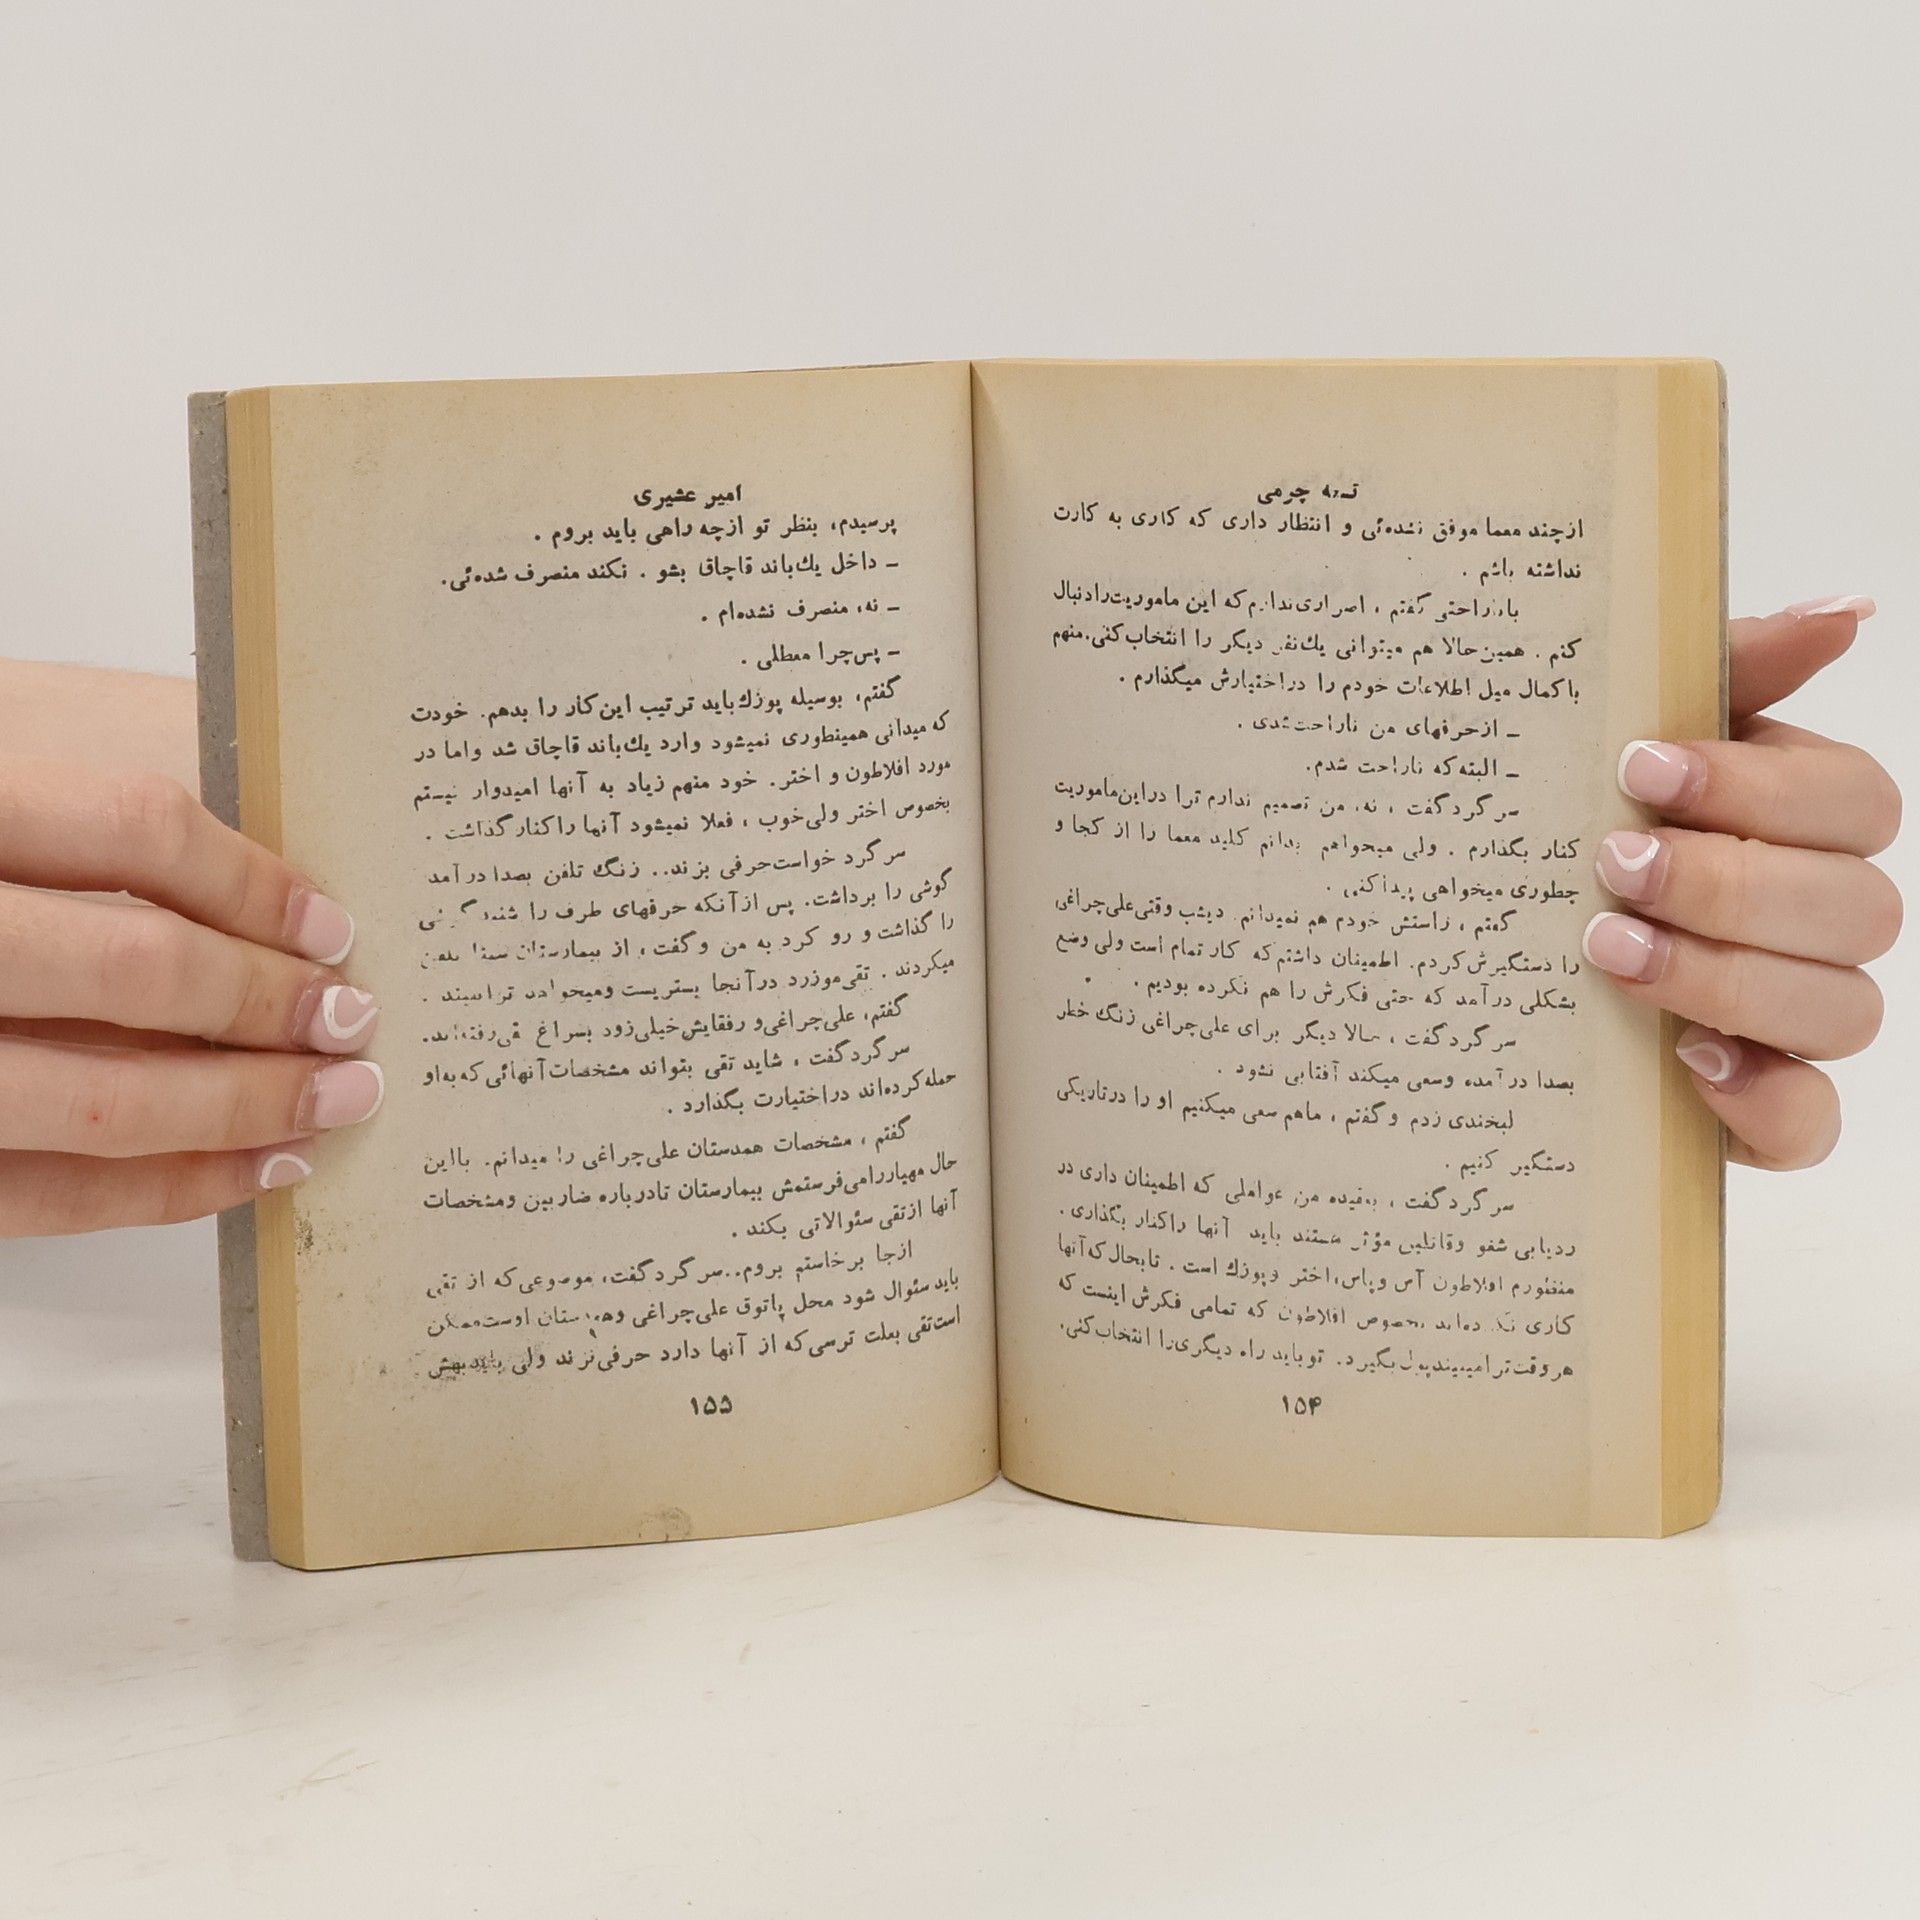 تسمه چرمی
ازچند معما موفق نشده‌ئی و انتظار داری که کاری به کارت
نداشته باشم .
باناراحتی گفتم ، اصراری‌ندارم که این ماموریت‌رادنبال
کنم . همین‌حالا هم میتوانی یك‌نفر دیگر را انتخاب‌کنی.منهم
با کمال میل اطلاعات خودم را دراختیارش میگذارم .
ـ ازحرفهای من ناراحت‌شدی .
ـ البته‌که ناراحت شدم.
سرگرد گفت ، نه، من تصمیم ندارم ترا دراین‌ماموریت
کنار بگذارم . ولی میخواهم بدانم کلید معما را از کجا و
چطوری میخواهی پیداکنی .
گفتم ، راستش خودم هم نمیدانم. دیشب وقتی‌علی‌چراغی
را دستگیرش‌کردم. اطمینان داشتم‌که کار تمام است ولی وضع
بشکلی درآمد که حتی فکرش را هم نکرده بودیم .
سرگرد گفت ، حالا دیگر برای علی‌چراغی زنگ خطر
بصدا درآمده وسعی میکند آفتابی نشود .
لبخندی زدم و گفتم ، ماهم سعی میکنیم او را درتاریکی
دستگیر کنیم .
سرگرد گفت ، بعقیده من عواملی که اطمینان داری در
ردیابی شفو وقاتلین مؤثر هستند باید آنها راکنار بگذاری.
منظورم افلاطون آس و پاس، اختر وپوزك است . تابحال که‌آنها
کاری نکرده‌اند بخصوص افلاطون که تمامی فکرش اینست که
هروقت‌ترامیبیندپول‌بگیرد. توباید راه دیگری‌را انتخاب‌کنی.
۱۵۴
امیر عشیری
پرسیدم، بنظر تو ازچه راهی باید بروم .
ـ داخل یك‌باند قاچاق بشو . نکند منصرف شده‌ئی.
ـ نه، منصرف نشده‌ام .
ـ پس‌چرا معطلی .
گفتم، بوسیله پوزك‌باید ترتیب این‌کار را بدهم. خودت
که میدانی همینطوری نمیشود وارد یك‌باند قاچاق شد واما در
مورد افلاطون و اختر. خود منهم زیاد به آنها امیدوار نیستم
بخصوص اختر ولی‌خوب ، فعلا نمیشود آنها راکنارگذاشت .
سرگرد خواست‌حرفی بزند.. زنگ تلفن بصدا درآمد
گوشی را برداشت. پس ازآنکه حرفهای طرف را شنید گوشی
را گذاشت و رو کرد به من و گفت ، از بیمارستان سینا تلفن
میکردند . تقی‌موزرد درآنجا بستریست ومیخواهد ترا ببیند .
گفتم، علی‌چراغی‌و رفقایش‌خیلی‌زود بسراغ تقی‌رفته‌اند.
سرگرد گفت ، شاید تقی بتواند مشخصات‌آنهائی که به‌او
حمله‌کرده‌اند دراختیارت بگذارد .
گفتم ، مشخصات همدستان علی‌چراغی را میدانم. بااین
حال مهیاررامی‌فرستمش بیمارستان تادرباره ضاربین ومشخصات
آنها ازتقی سئوالاتی بکند .
ازجا برخاستم بروم..سرگرد گفت، موضوعی‌که از تقی
باید سئوال شود محل پاتوق علی‌چراغی وهمدستان اوست‌ممکن
است‌تقی بعلت ترسی‌که از آنها دارد حرفی‌نزند ولی بایدبهش
۱۵۵